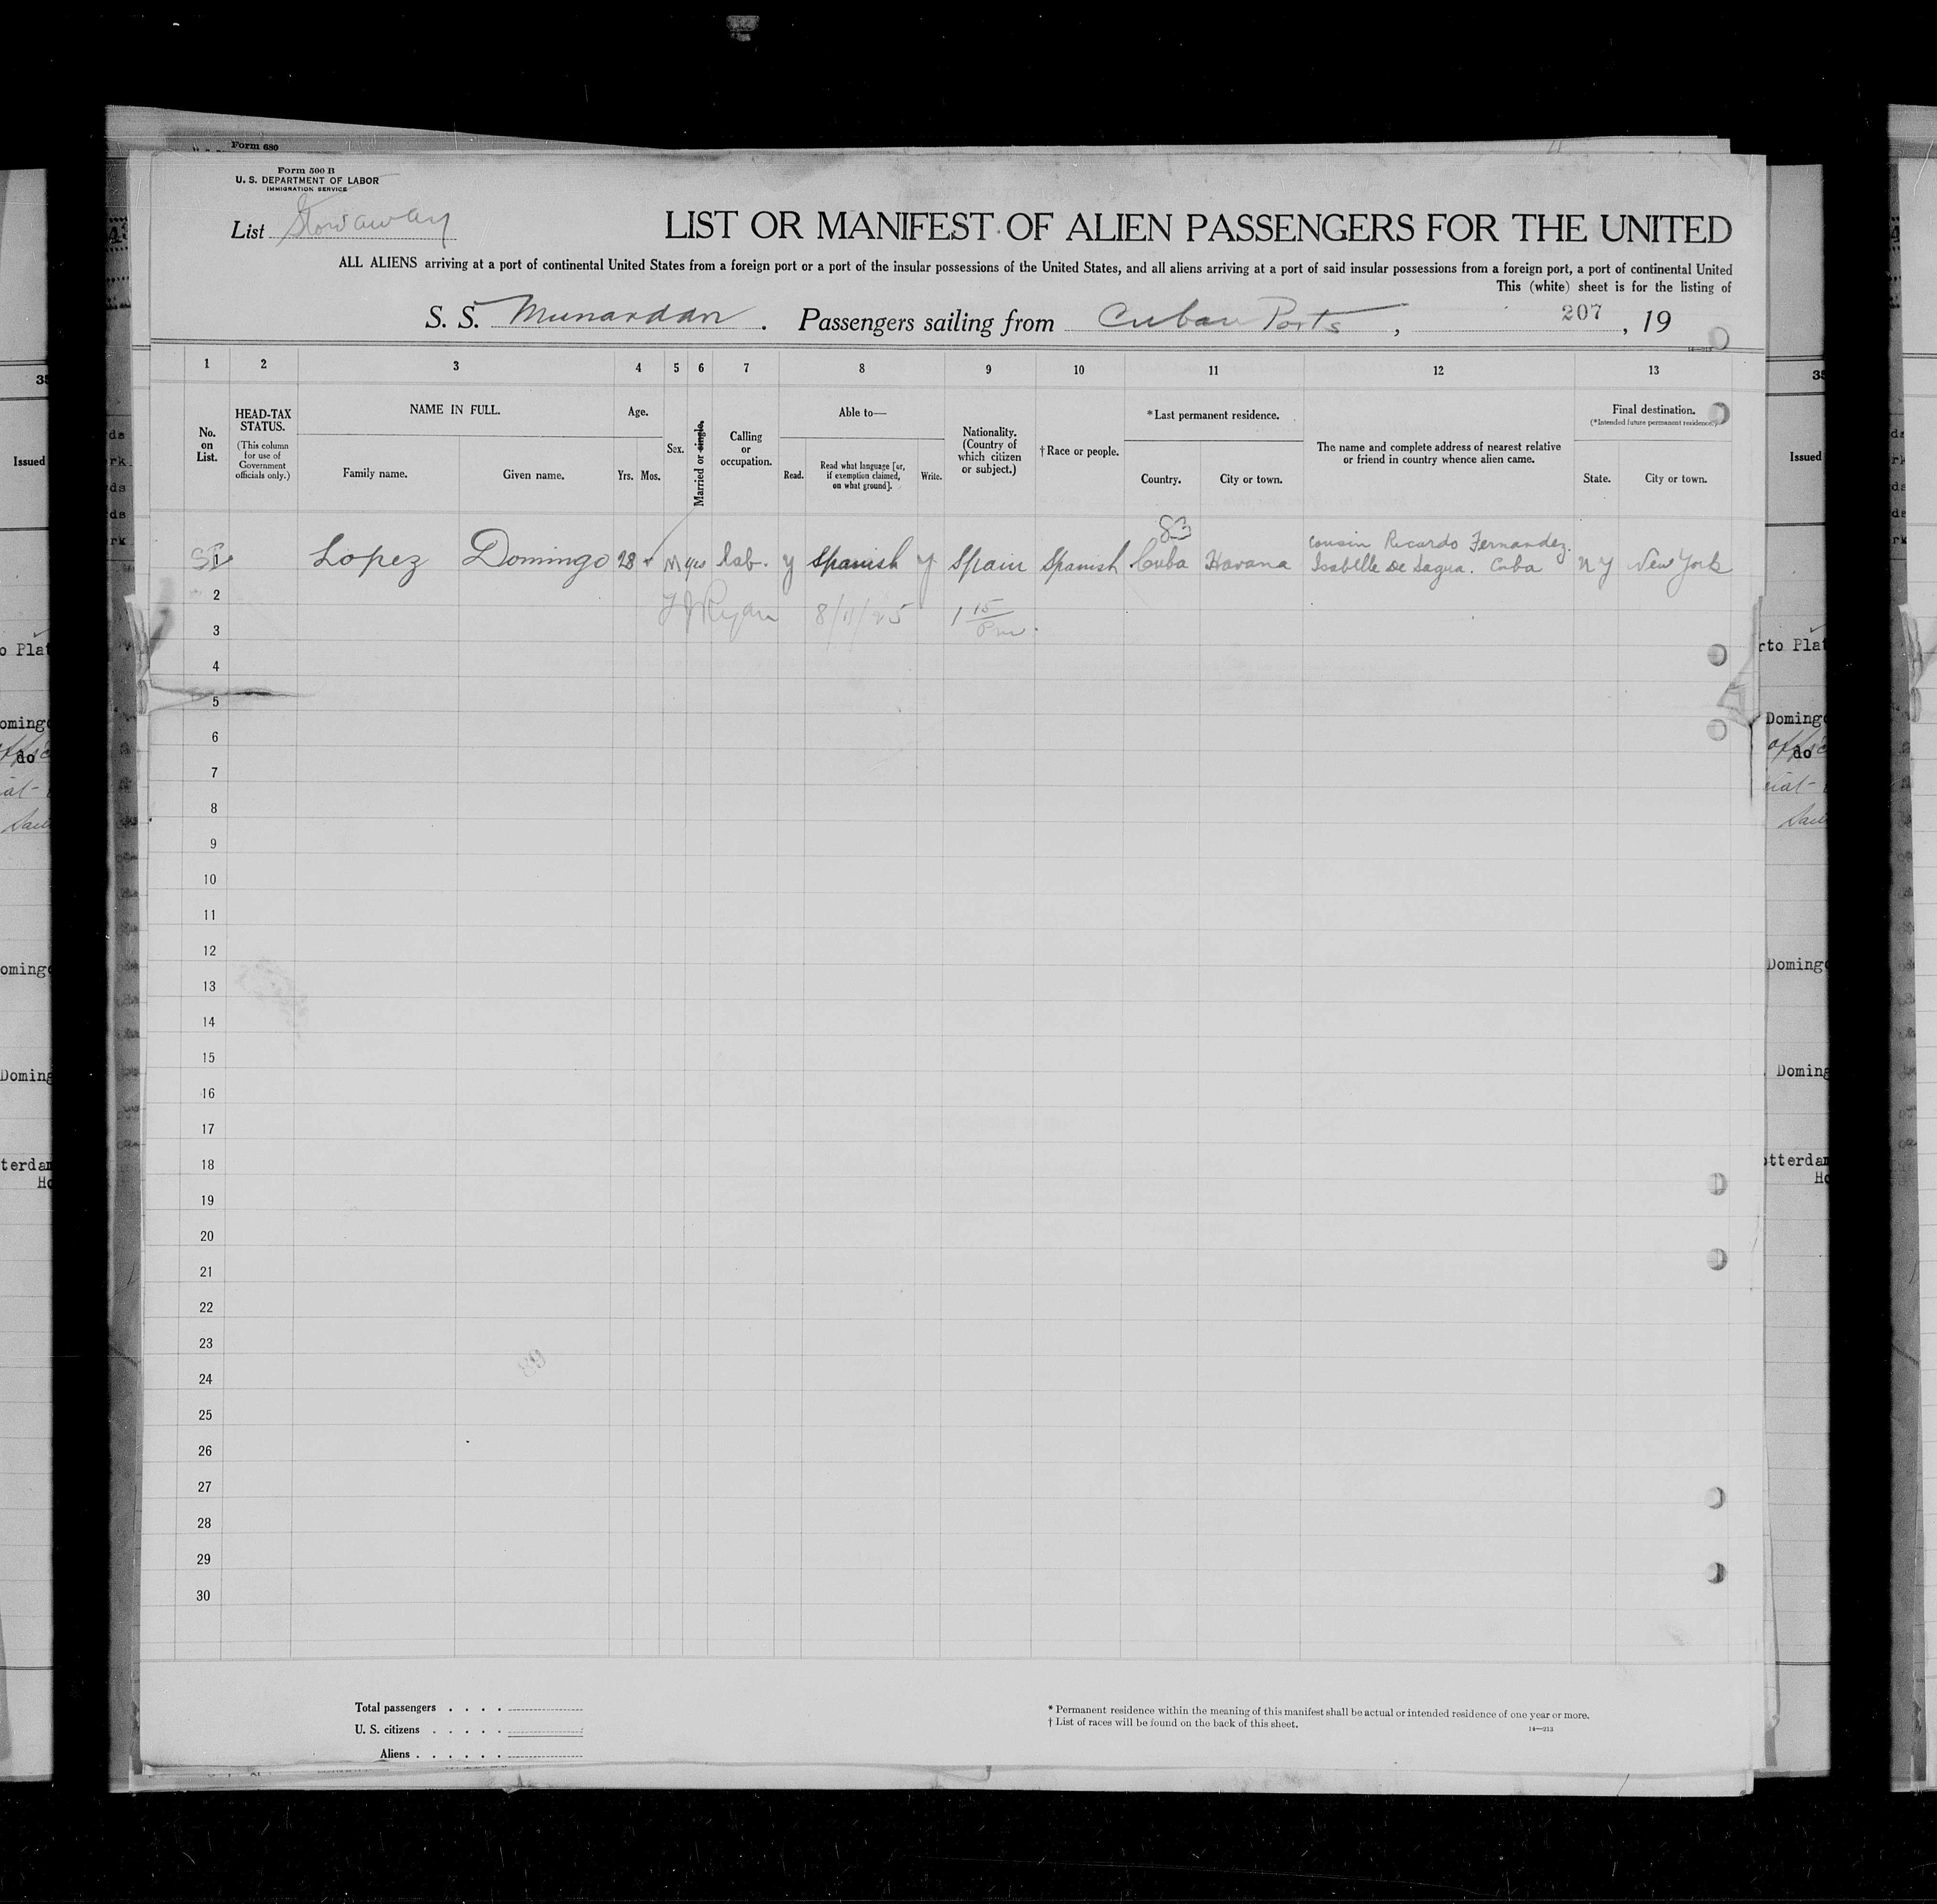 Form 680
Form 500 B
U. S. DEPARTMENT OF LABOR
IMMIGRATION SERVICE
List Stowaway
LIST OR MANIFEST OF ALIEN PASSENGERS FOR THE UNITED
ALL ALIENS arriving at a port of continental United States from a foreign port or a port of the insular possessions of the United States, and all aliens arriving at a port of said insular possessions from a foreign port, a port of continental United
This (white) sheet is for the listing of
S. S. Munardan . Passengers sailing from Cuban Ports , 207 , 19
1 2 3 4 5 6 7 8 9 10 11 12 13
No. on List.
HEAD-TAX STATUS.
(This column for use of Government officials only.)
NAME IN FULL.
Family name.
Given name.
Age.
Yrs. Mos.
Sex.
Married or single.
Calling or occupation.
Able to—
Read.
Read what language [or, if exemption claimed, on what ground].
Write.
Nationality. (Country of which citizen or subject.)
† Race or people.
* Last permanent residence.
Country.
City or town.
The name and complete address of nearest relative or friend in country whence alien came.
Final destination.
(* Intended future permanent residence.)
State.
City or town.
83
cousin Ricardo Fernandez.
1 Lopez Domingo 28 M yes lab. y Spanish y Spain Spanish Cuba Havana Isabelle De Sagua. Cuba N Y New York
2
T J Ryan 8/11/25 1 15 Pm.
3
4
5
6
7
8
9
10
11
12
13
14
15
16
17
18
19
20
21
22
23
24
25
26
27
28
29
30
Total passengers . . . .
U. S. citizens . . . . .
Aliens . . . . . .
* Permanent residence within the meaning of this manifest shall be actual or intended residence of one year or more.
† List of races will be found on the back of this sheet.
14—213